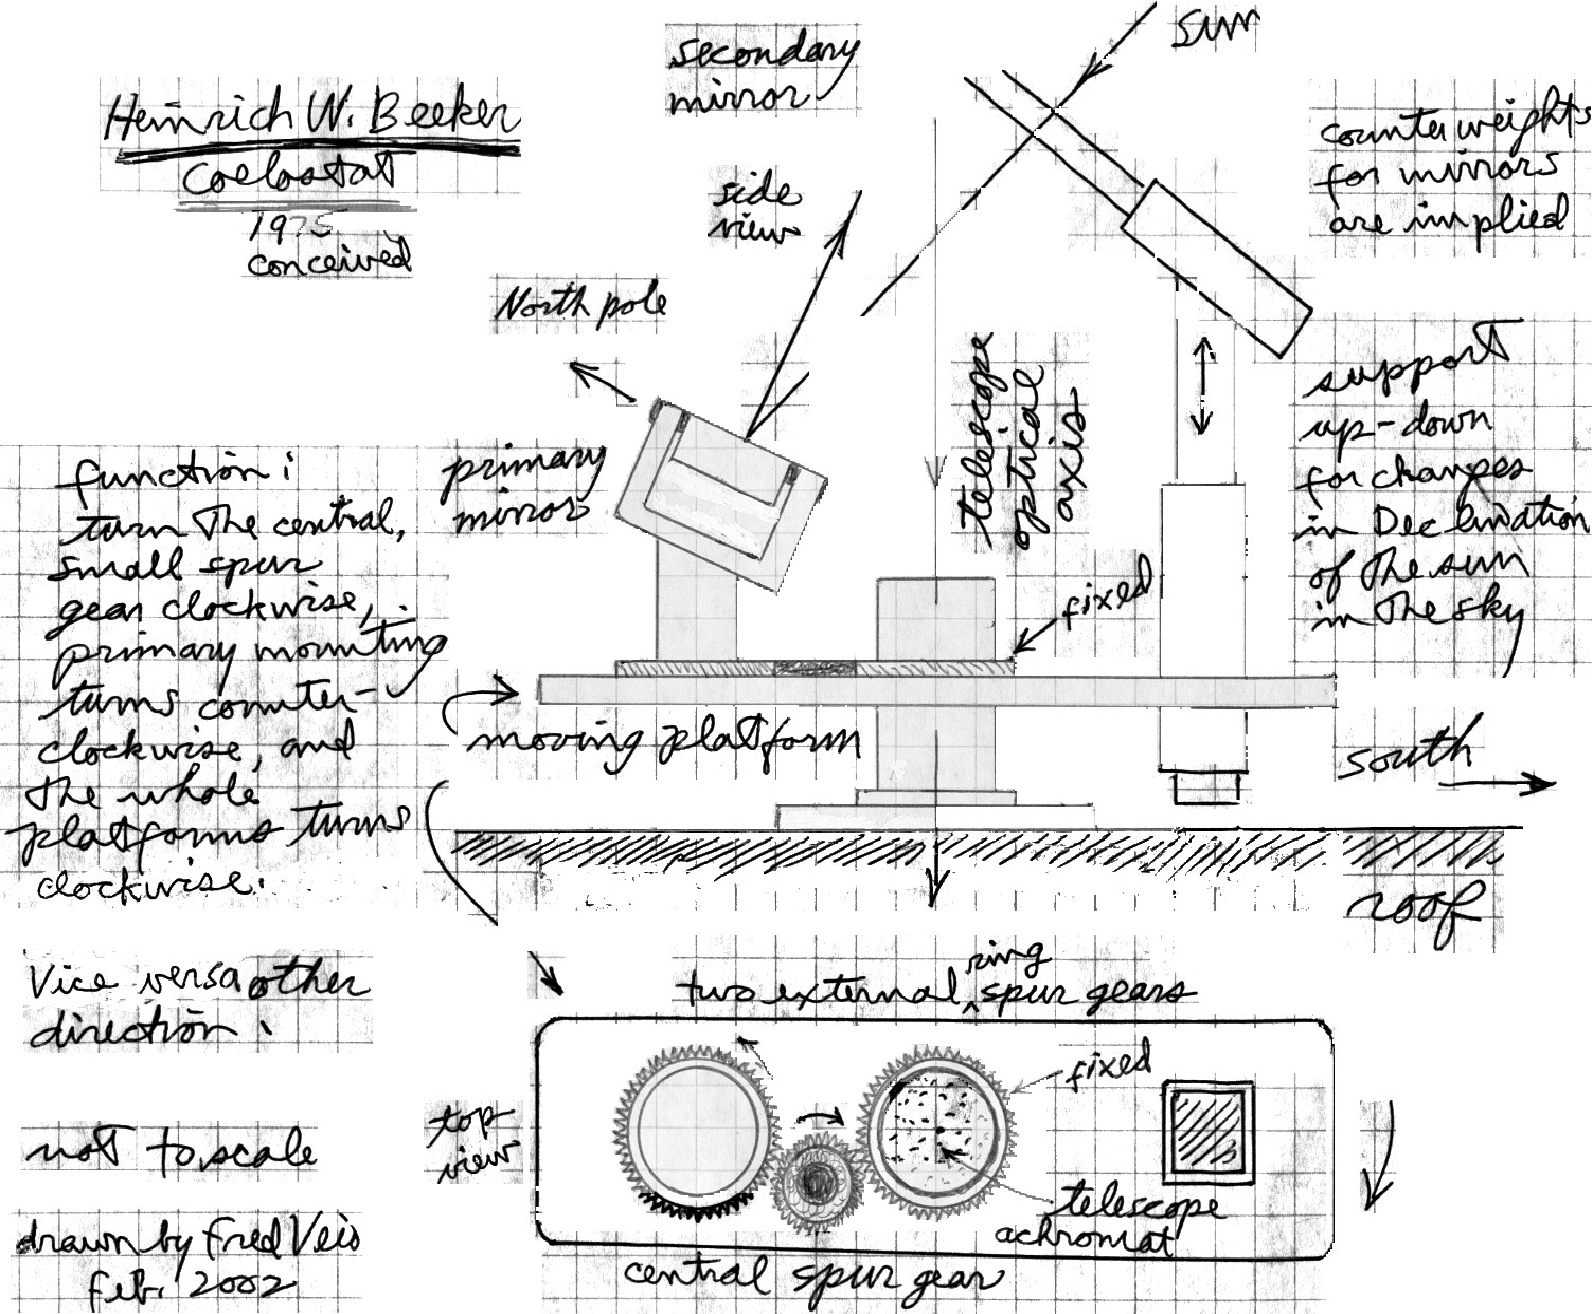 Heinrich W. Beeker
Coelostat
1975
conceived
secondary
mirror
side
view
sun
counterweights
for mirrors
are implied
North pole
primary
mirror
telescope
optical
axis
fixed
support
up-down
for changes
in Declination
of the sun
in the sky
function:
turn the central,
small spur
gear clockwise,
primary mounting
turns counter-
clockwise, and
the whole
platforms turns
clockwise.
moving platform
south
roof
Vice versa other
direction.
two external ring spur gears
fixed
top
view
not to scale
telescope
achromat
central spur gear
drawn by Fred Veio
Feb. 2002